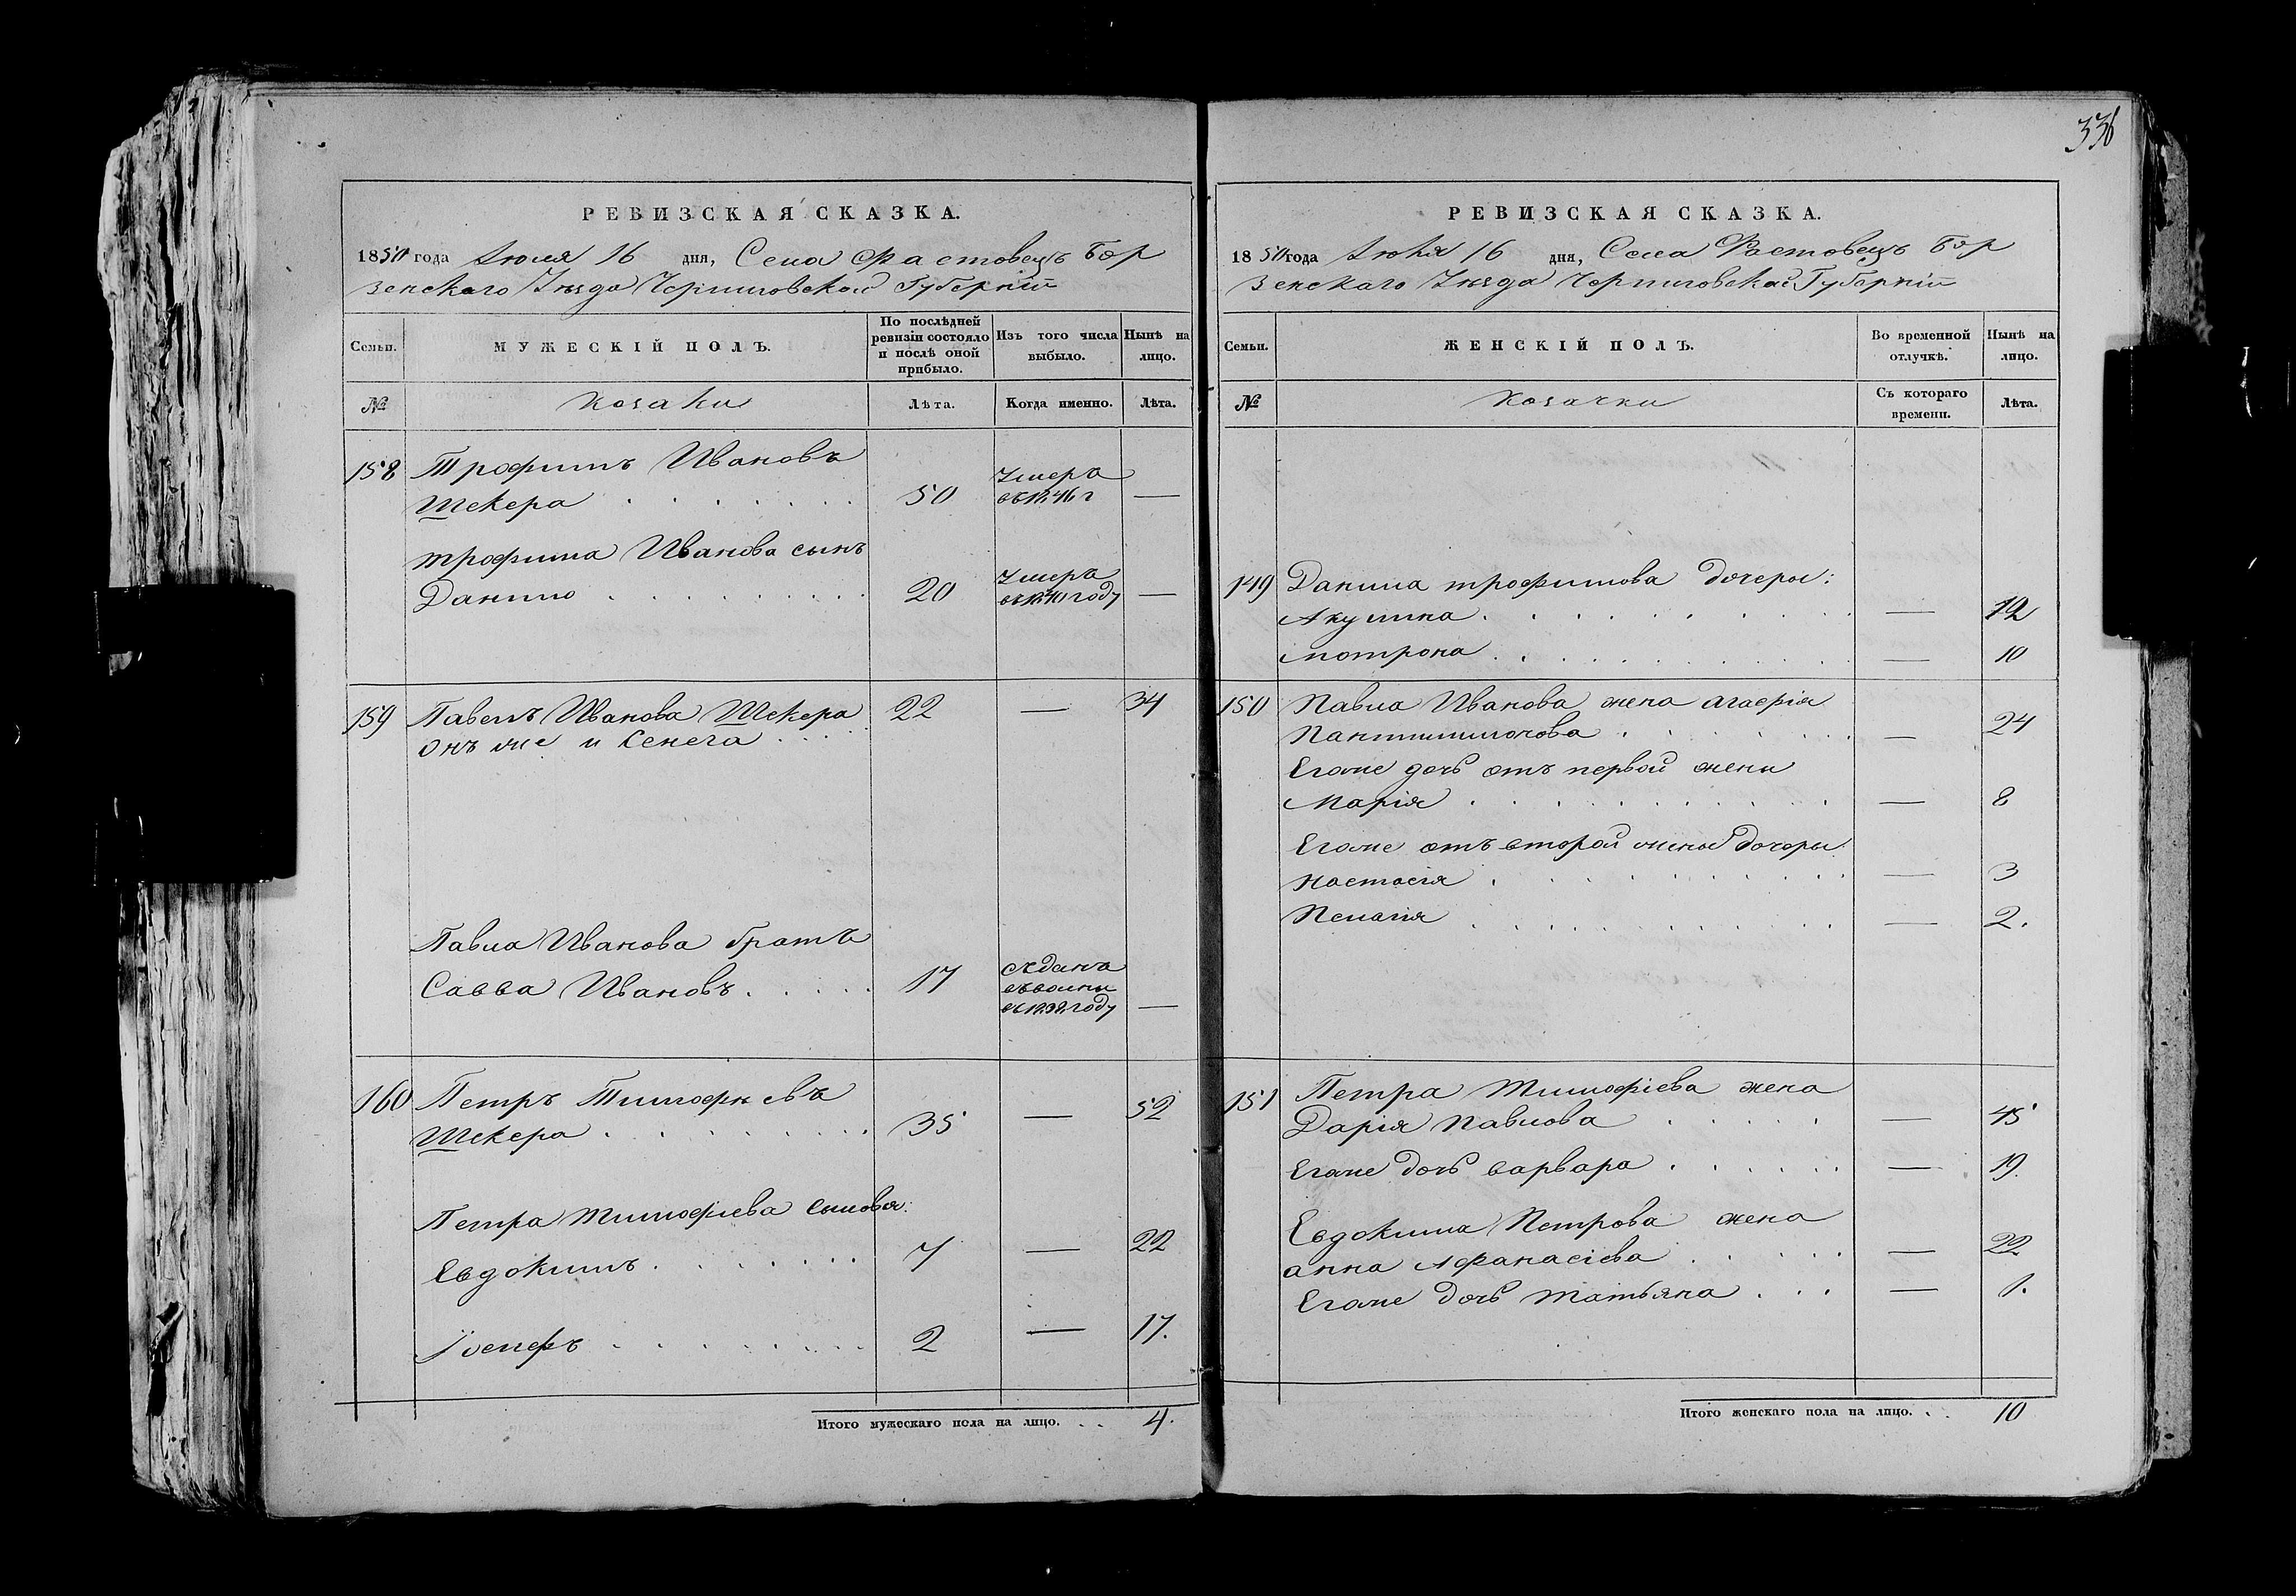 336
РЕВИЗСКАЯ СКАЗКА.
1850 года Июля 16 дня, Села Фастовецъ Бор
зенскаго Уѣзда Черниговской Губерніи
Семьи.
МУЖЕСКІЙ ПОЛЪ.
По послѣдней ревизіи состояло и послѣ оной прибыло.
Изъ того числа выбыло.
Нынѣ на лицо.
№
козаки
Лѣта.
Когда именно.
Лѣта.
158 Трофимъ Ивановъ
Шекера 50 Умеръ въ 1846 г —
трофима Иванова сынъ
Данило 20 Умеръ году —
159 Павелъ Иванова Шекера 22 — 34
онъ же и Сенега
Павла Иванова братъ
Савва Ивановъ 17 году —
160 Петръ Тимофѣевъ
Шекера 35 — 52
Петра Тимофіева сыновья:
Евдокимъ 7 — 22
Іосифъ 2 — 17.
Итого мужескаго пола на лицо. 4.
РЕВИЗСКАЯ СКАЗКА.
1850 года Июля 16 дня, Села Фастовецъ Бор
зенскаго Уѣзда Черниговской Губерніи
Семьи.
ЖЕНСКІЙ ПОЛЪ.
Во временной отлучкѣ.
Нынѣ на лицо.
№
козачки
Съ котораго времени.
Лѣта.
149 Данила трофимова дочеры:
Акулина — 12
мотрона — 10
150 Павла Иванова жена
— 24
Егоже дочь отъ первой жены
Марія — 8
Егоже отъ второй жены дочеры:
Настасія — 3
Пелагія — 2.
151 Петра Тимофіева жена
Дарія Павлова — 45
Егоже дочь варвара — 19.
Евдокима Петрова жена
анна Афанасіева — 22
Егоже дочь татьяна — 1.
Итого женскаго пола на лицо. 10